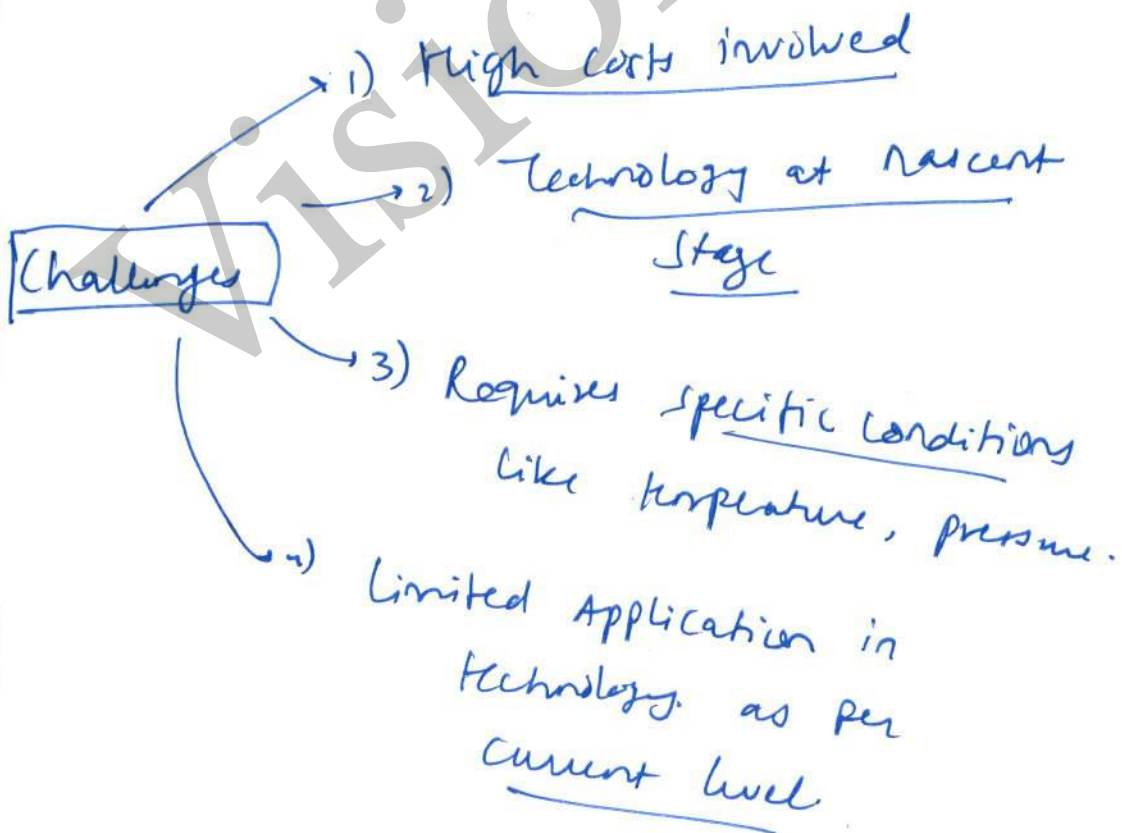 1) High costs involved
2) Technology at nascent
stage
Challenges
3) Requires specific conditions
like temperature, pressure.
4) Limited Application in
technology. as per
current level.
Vision